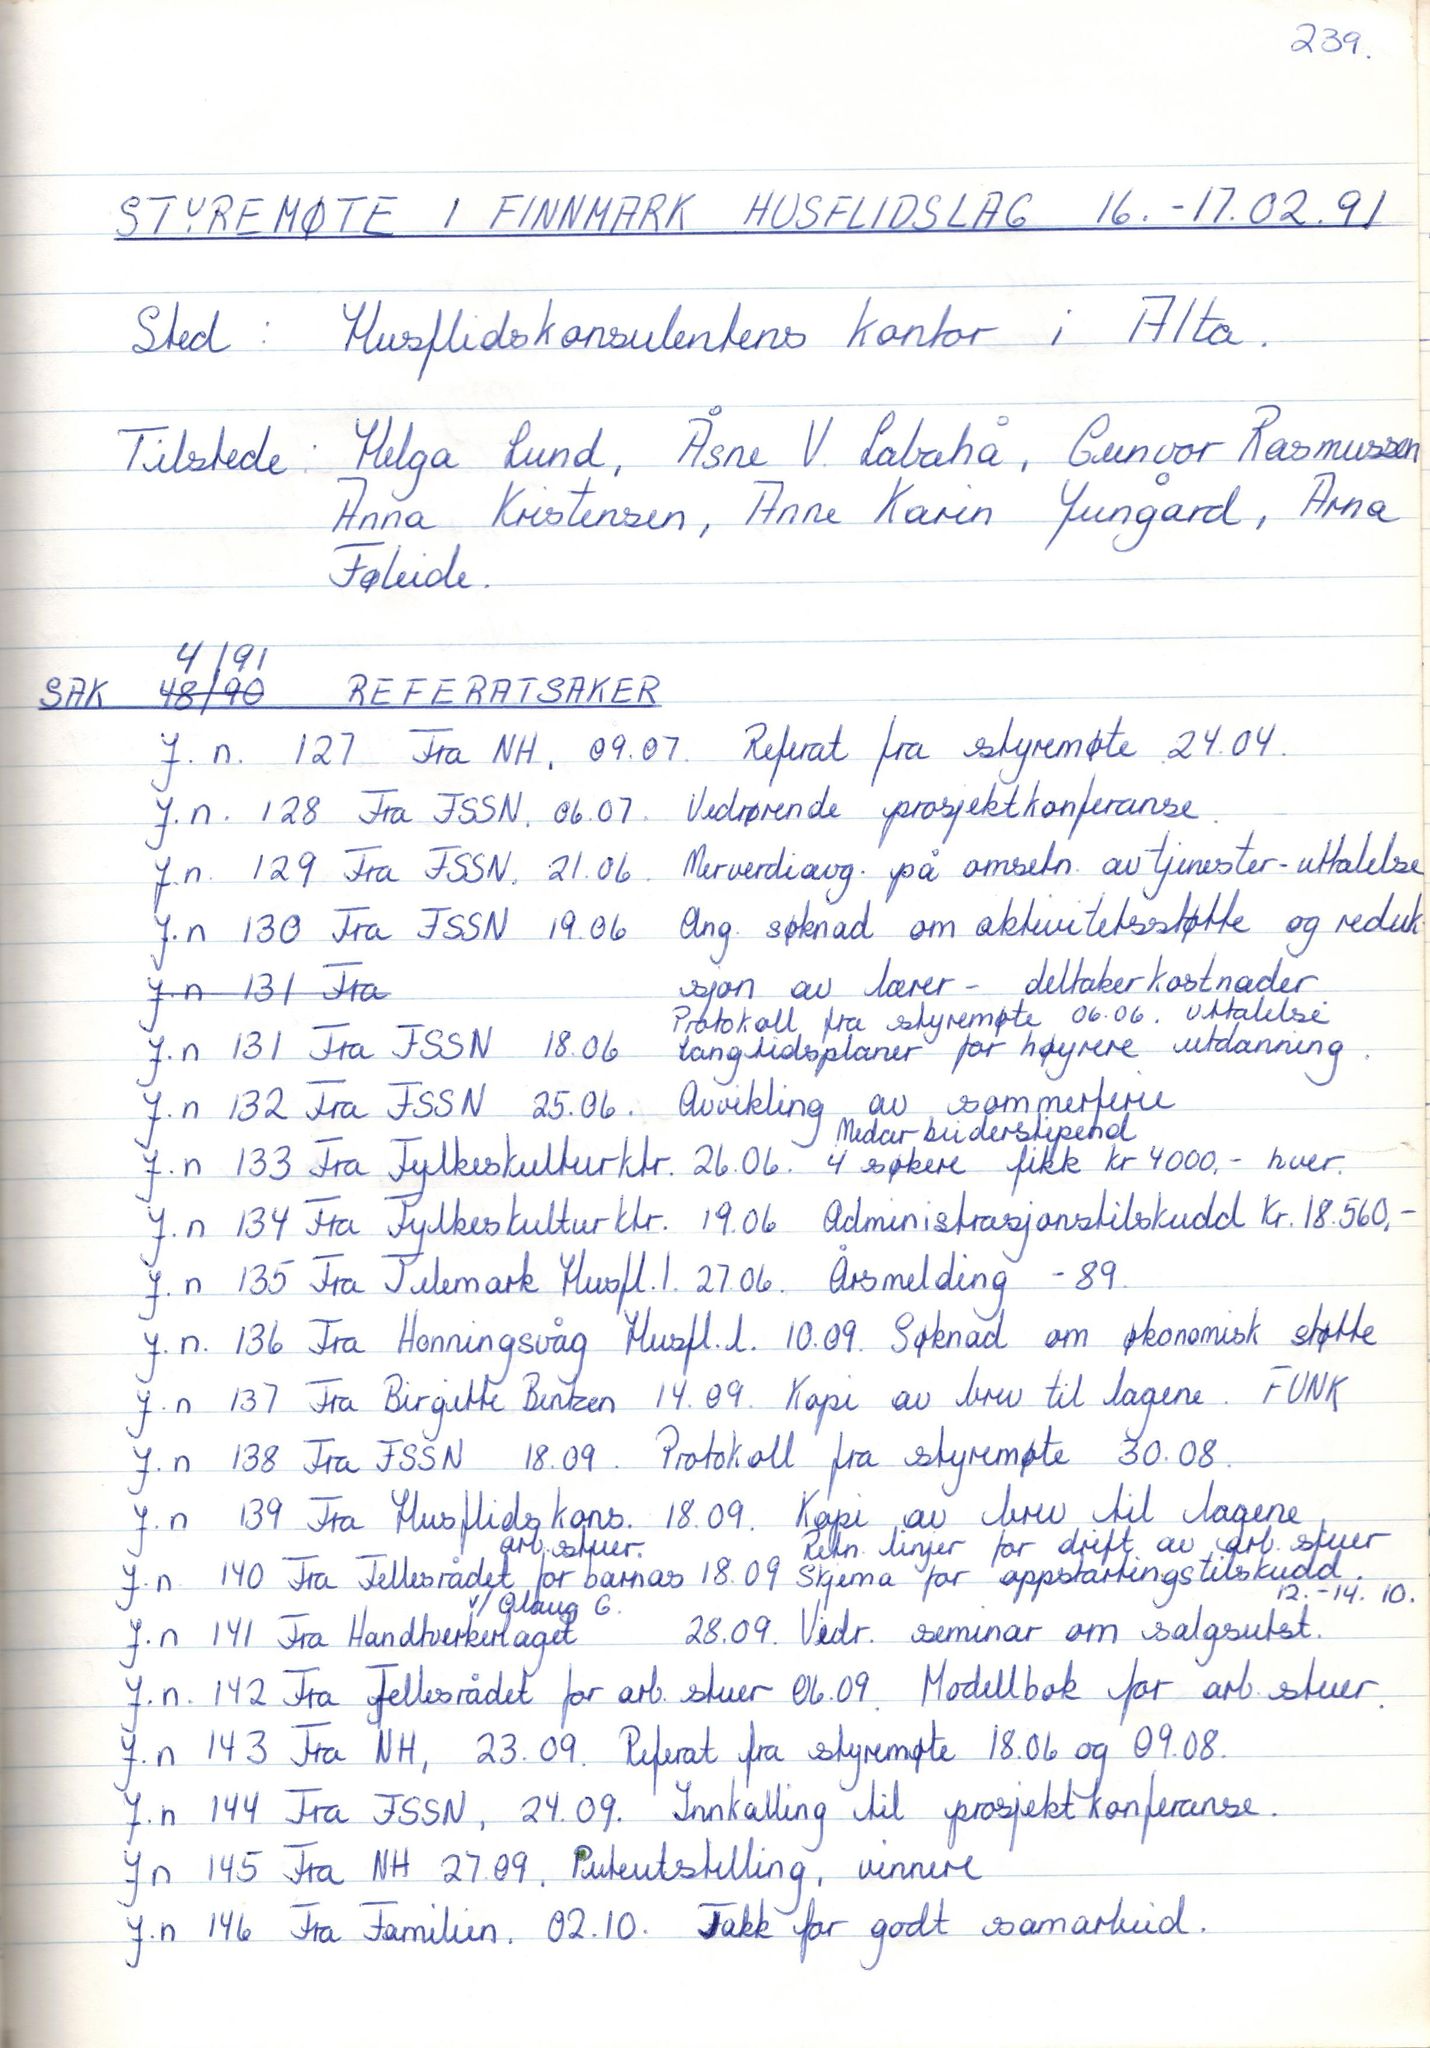 239.
STYREMØTE I FINNMARK HUSFLIDSLAG 16.-17.02.91
Sted : Husflidskonsulentens kontor i Alta.
Tilstede : Helga Lund, Åsne V. Labahå, Gunvor Rasmussen
Anna Kristensen, Anne Karin Jungård, Arna
Føleide.
4/91
SAK 48/90 REFERATSAKER
J.n. 127 Fra NH, 09.07. Referat fra styremøte 24.04.
J.n. 128 Fra FSSN, 06.07. Vedrørende prosjektkonferanse.
J.n. 129 Fra FSSN, 21.06. Merverdiavg. på omsetn. av tjenester - uttalelse
J.n 130 Fra FSSN 19.06 Ang. søknad om aktivitetsstøtte og reduk-
J.n 131 Fra sjon av lærer - deltakerkostnader
Protokoll fra styremøte 06.06. uttalelse
J.n 131 Fra FSSN 18.06 langtidsplaner for høyrere utdanning.
J.n 132 Fra FSSN 25.06. Avvikling av sommerferie
Medarbeiderstipend
J.n 133 Fra Fylkeskulturktr. 26.06. 4 søkere fikk kr 4000,- hver.
J.n 134 Fra Fylkeskulturktr. 19.06 Administrasjonstilskudd kr. 18.560,-
J.n 135 Fra Telemark Husfl.l. 27.06. Årsmelding -89.
J.n. 136 Fra Honningsvåg Husfl.l. 10.09. Søknad om økonomisk støtte
J.n 137 Fra Birgitte Bentzen 14.09. Kopi av brev til lagene. FUNK
J.n 138 Fra FSSN 18.09. Protokoll fra styremøte 30.08.
J.n 139 Fra Husflidskons. 18.09. Kopi av brev til lagene
arb.stuer. Retn. linjer for drift av arb. stuer
J.n. 140 Fra Fellesrådet for barnas 18.09 Skjema for oppstartingstilskudd.
v/ Olaug G. 12.-14. 10.
J.n 141 Fra Handtverkerlaget 28.09. Vedr. seminar om salgsutst.
J.n. 142 Fra Fellesrådet for arb. stuer 06.09. Modellbok for arb. stuer.
J.n 143 Fra NH, 23.09. Referat fra styremøte 18.06 og 09.08.
J.n 144 Fra FSSN, 24.09. Innkalling til prosjektkonferanse.
J n 145 Fra NH 27.09. Puteutstilling, vinnere
J.n 146 Fra Familien. 02.10. Takk for godt samarbeid.